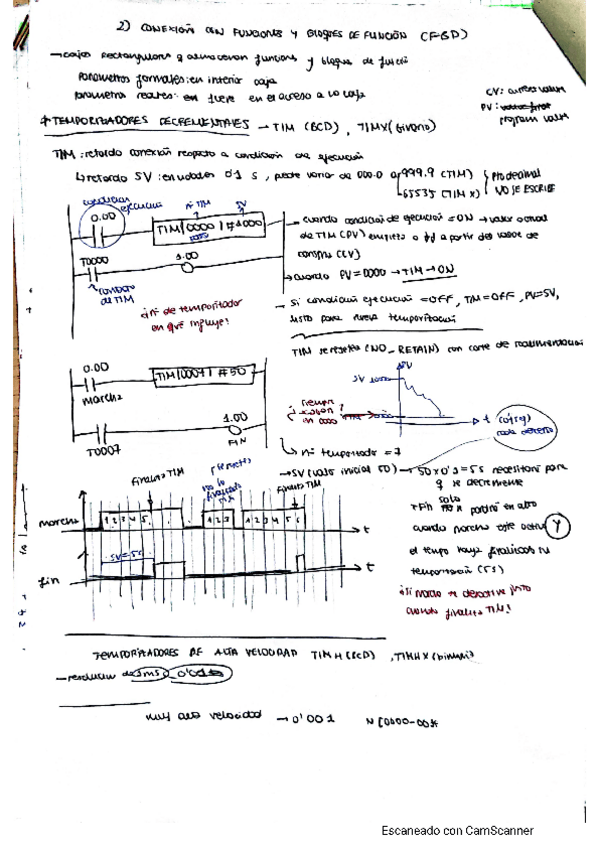 2) CONEXIÓN CON FUNCIONES Y BLOQUES DE FUNCIÓN (FBD)
→ cajas rectangulares q almacenan funciones y bloques de función
Parámetros formales: en interior caja
parámetros reales: en fuera en el acceso a la caja
CV: current value
PV:
program value
* TEMPORIZADORES DECREMENTALES → TIM (BCD), TIMX (binario)
TIM: retardo conexión respecto a condición de ejecución
↳ retardo SV: en unidades 0'1 s, puede variar de 000.0 a 999.9 (TIM)
65535 (TIMX)
NO SE ESCRIBE
condición
ejecución
nº TIM
SV
0.00
TIM | 0000 | #
T0000
1.00
contacto
de TIM
¡nº de temporizador
en que influye!
- cuando condición de ejecución = ON → valor actual
de TIM (PV) empieza a a partir del valor de
→ cuando PV = 0000 → TIM → ON
- Si condición ejecución = OFF, TIM = OFF, PV = SV,
listo para nueva temporización
TIM se resetea (NO_RETAIN) con corte de realimentación
0.00
TIM | 0007 | #50
marcha
1.00
FIN
T0007
SV
t
↳ nº temporizador = 7
→ SV (valor inicial 50) → 50 x 0'1 = 5 s necesitan para
q se decremente
finaliza TIM
finaliza TIM
marcha
1 2 3 4 5
1 2 3
1 2 3 4 5
t
SV = 5s
fin
t
* Fin solo podrá en alto
cuando marcha esté activa Y
el tempo haya finalizado su
temporización (5s)
¡Si marcha se desactiva justo
cuando finaliza TIM!
TEMPORIZADORES DE ALTA VELOCIDAD TIMH (BCD), TIMHX (binario)
- resolución de
muy alta velocidad → 0'001
Escaneado con CamScanner